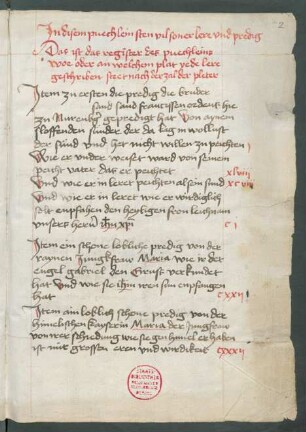 2
In disem puechlein sten vil soner lere vnd predig
Das ist das register des puechleins
woe oder an welchem plat yede lere
geschriben stet nach der zal der pleter
Item zu ersten die predig die bruder
sand francissen ordens hie
zu Nurenberg gepredigt hat Von aynem
sloffenden sunder der da lag in wollust
der sund vnd het nicht willen zu peichten I
Wie er vnder weiset ward von seinem
peicht vater das er peichtet XLVIII
Vnd wie er in leret peichten all sein sund XCVIII
Vnd wie er in leret wie er wirdiglich
solt enpfahen den heyligen fron leichnam
unsers herrn ihu xpi CI
Item ein schone lobliche predig von der
raynen Jungkfraw Maria wie ir der
engel gabriel den Gruss verkundet
hat Vnd wie sie ihm iren sun enpfangen
hat CXXII
Item ain loblich schone predig von der
himelischen kayserin Maria der Jungfraw
von irer schiedung wie sie gen himel erhaben
ist mit grossen eren vnd wirdikeit CXXXII
STAATS
BIBLIOTHEK
BERLIN